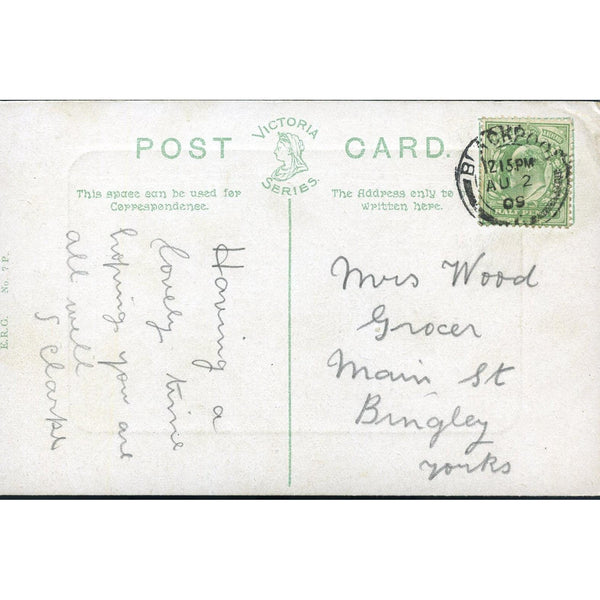 POST CARD.
VICTORIA
SERIES
This space can be used for
Correspondence.
The Address only to
written here.
BLACKPOOL
12 15 PM
AU 2
09
HALF PENNY
E.R.G. No. 7 P.
Having a
lovely time
hoping you are
all well
S Clarke
Mrs Wood
Grocer
Main St
Bingley
yorks